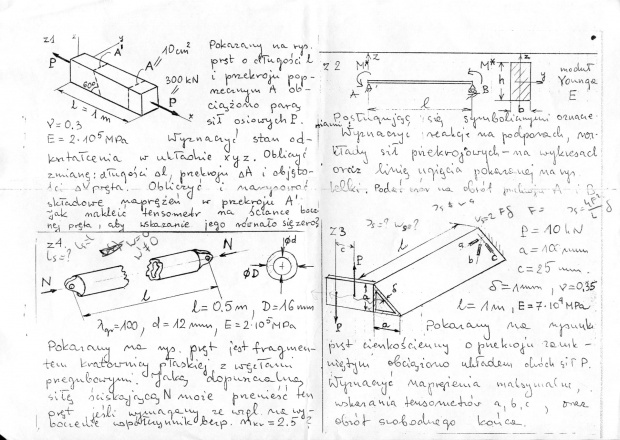 z1
y
A'
A
10cm²
P
60°
l = 1m
300 kN
P
x
ν = 0.3
E = 2·10⁵ MPa
Pokazany na rys.
pręt o długości l
i przekroju pop-
rzecznym A ob-
ciążono parą
sił osiowych P.
Wyznaczyć stan od-
kształcenia w układzie xyz. Obliczyć
zmianę: długości Δl, przekroju ΔA i objęto-
ści ΔV pręta. Obliczyć i narysować
składowe naprężeń w przekroju A'
Jak nakleić tensometr na ściance bocz
nej pręta, aby wskazanie jego równało się zero
z2
M*
z
M*
A
B
l
h
b
z
y
moduł
Younga
E
Posługując się symbolicznymi oznacze-
niami
Wyznaczyć reakcje na podporach, roz-
kłady sił przekrojowych - na wykresach
oraz linię ugięcia pokazanej na rys.
belki. Podać wzór na obrót przekroju A i B
z4
N
N
l
φd
φD
l = 0.5m, D = 16mm
λgr = 100, d = 12mm, E = 2·10⁵MPa
Pokazany na rys. pręt jest fragmen-
tem kratownicy płaskiej z węzłami
przegubowymi. Jaką dopuszczalną
siłę ściskającą N może przenieść ten
pręt jeśli wymagany ze wzgl. na wy-
boczenie współczynnik bezp. nkw = 2.5
z3
c
P
P
l
a
a
δ
a
b
c
P = 10 kN
a = 100 mm
c = 25 mm.
δ = 1mm, ν = 0,35
l = 1m, E = 7·10⁴ MPa
Pokazany na rysunku
pręt cienkościenny o przekroju zamk-
niętym obciążono układem dwóch sił P.
Wyznaczyć naprężenia maksymalne,
wskazania tensometrów a, b, c, oraz
obrót swobodnego końca.